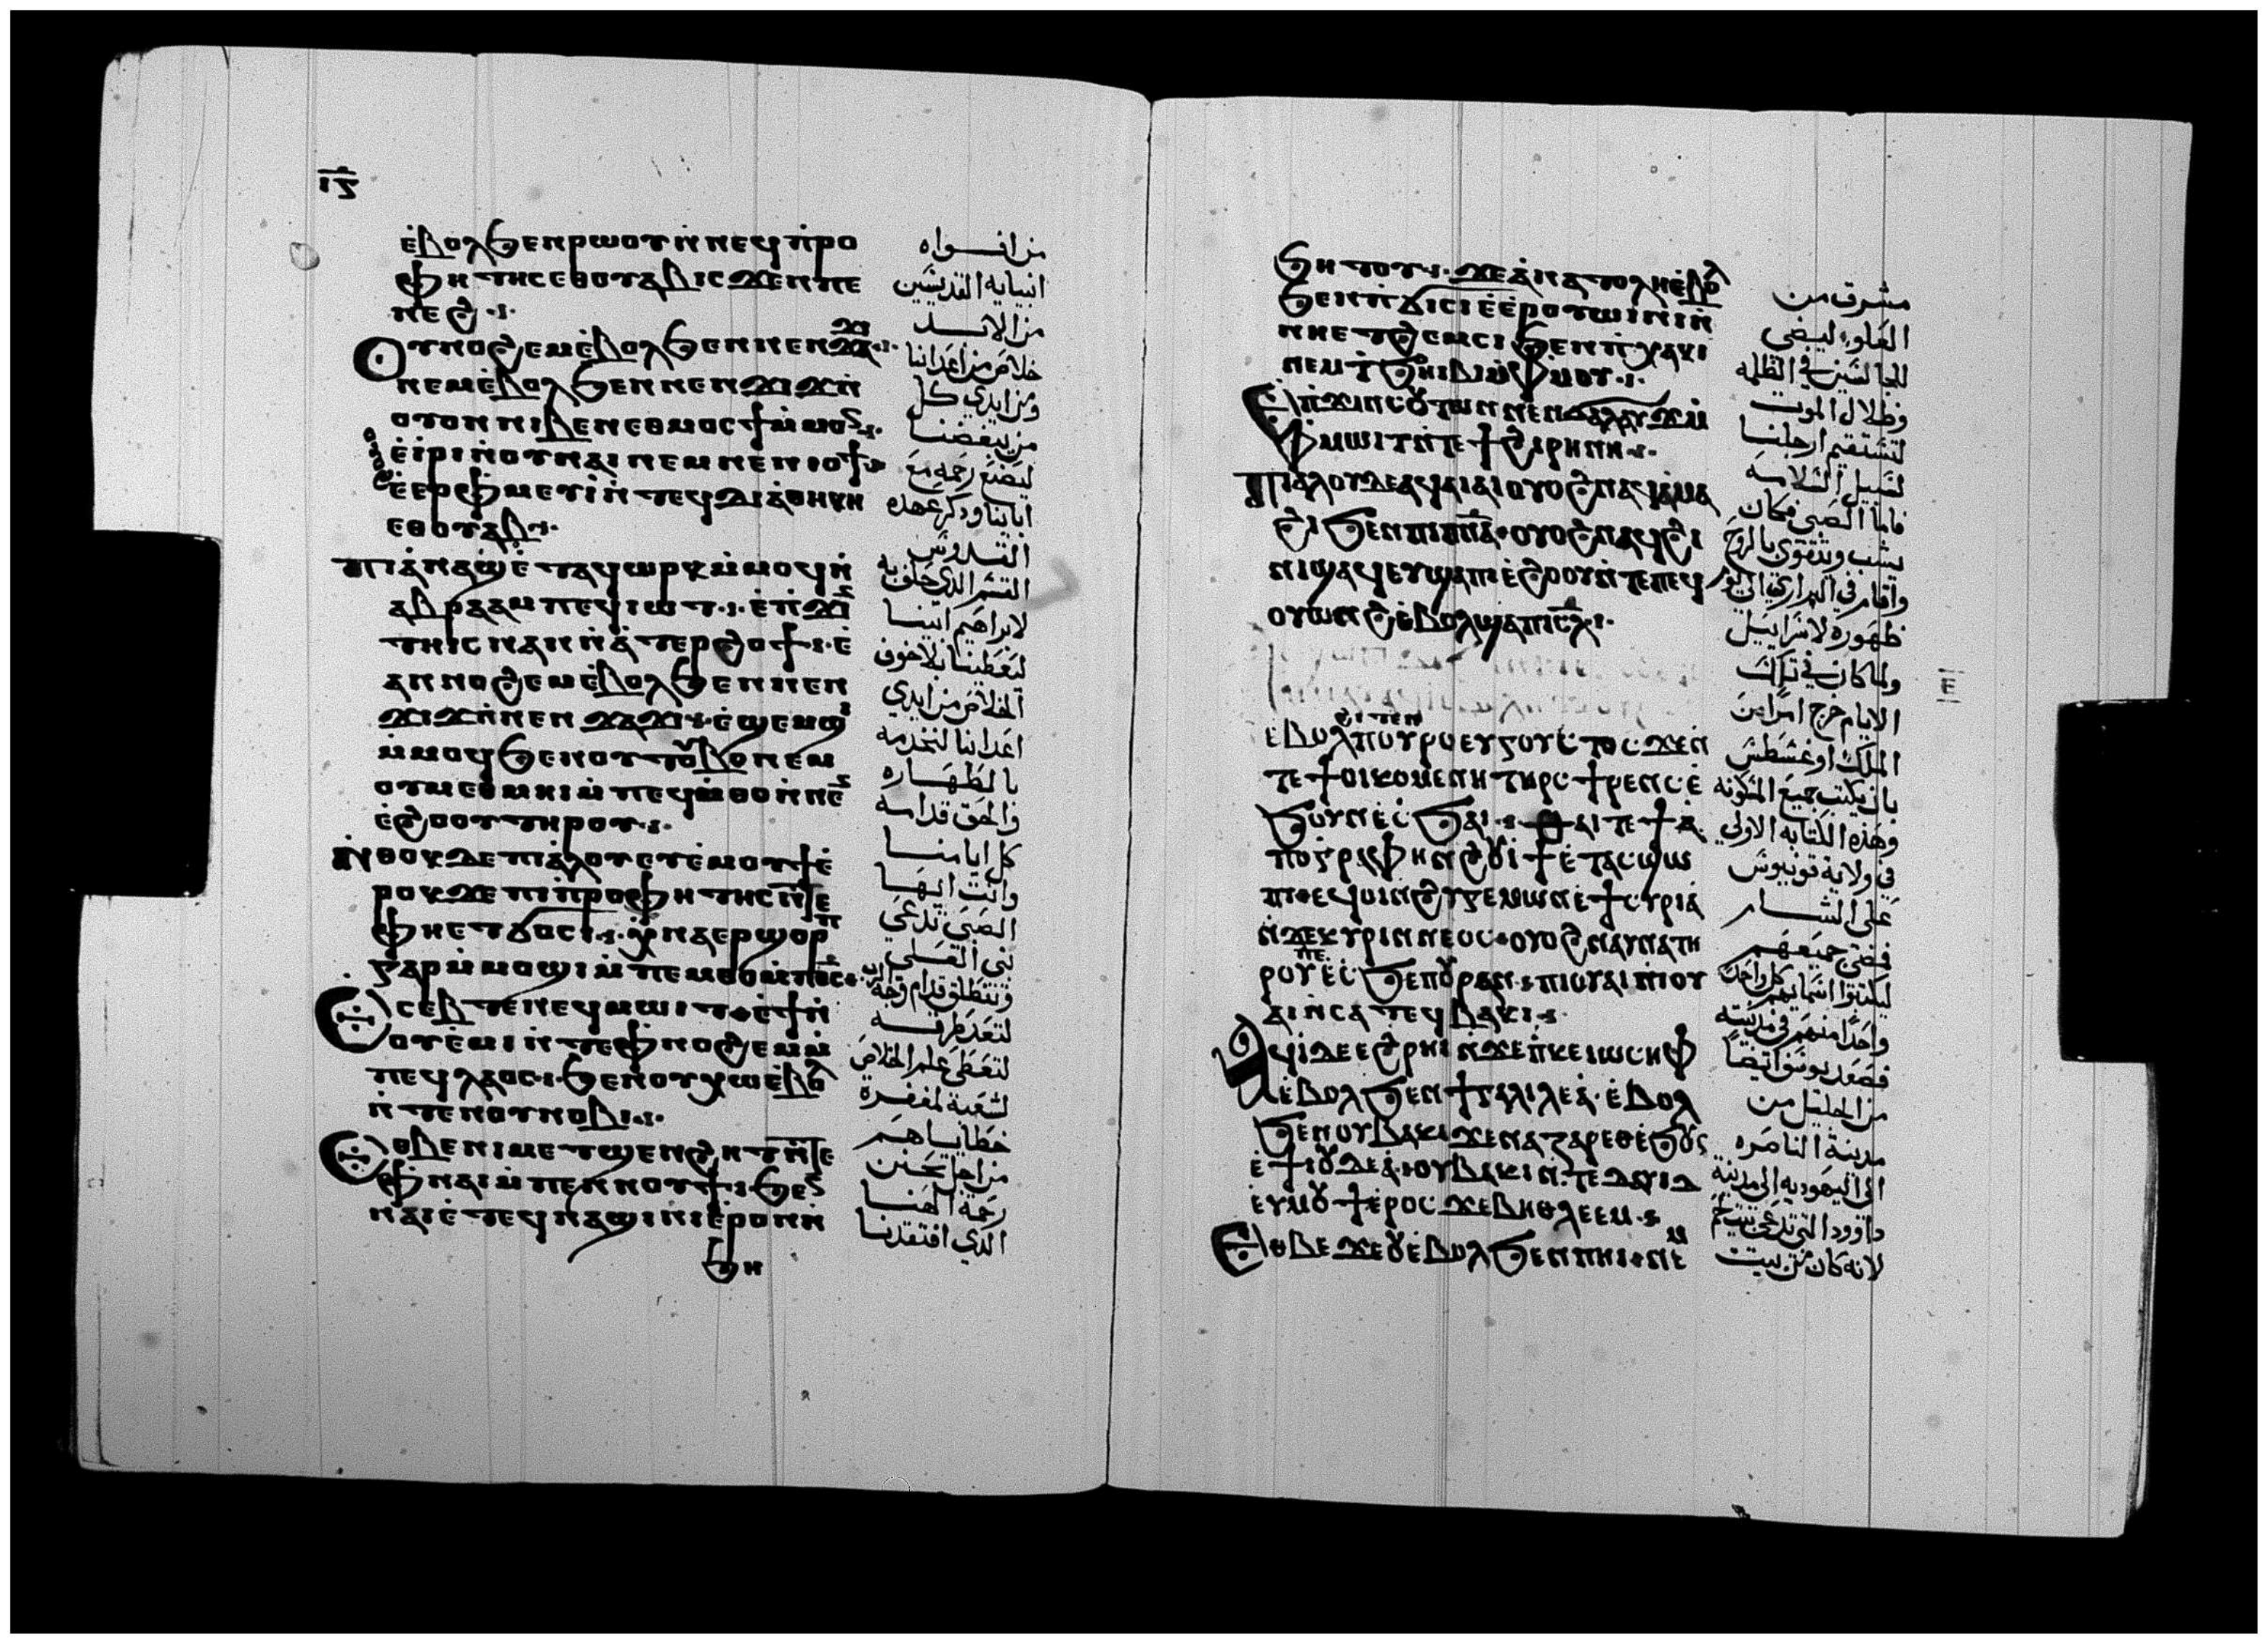 ⲓ̅ⲋ̅
ⲉ̀ⲃⲟⲗϧⲉⲛⲣⲱⲟⲩⲛ̀ⲛⲉϥⲡ̀ⲣⲟ
ⲫⲏⲧⲏⲥⲉⲑⲟⲩⲁⲃⲓⲥϫⲉⲛⲡⲉ
ⲛⲉϩ
ⲟⲩⲛⲟϩⲉⲙⲉ̀ⲃⲟⲗϧⲉⲛⲛⲉⲛϫⲁϫⲓ
ⲛⲉⲙⲉ̀ⲃⲟⲗϧⲉⲛⲛⲉⲛϫⲓϫⲛ̀
ⲟⲩⲟⲛⲛⲓⲃⲉⲛⲉⲑⲙⲟⲥϯⲙ̀ⲙⲟⲛ
ⲉ̀ⲓⲣⲓⲛ̀ⲟⲩⲛⲁⲓⲛⲉⲙⲛⲉⲛⲓⲟϯ
ⲟⲩⲟϩ
ⲉ̀ⲉⲣⲫⲙⲉⲩⲓ̀ⲛ̀ⲧⲉϥⲇⲓⲁⲑⲏⲕⲏ
ⲉⲑⲟⲩⲁⲃ
ⲡⲓⲁ̀ⲛⲁϣⲉ̀ⲧⲁϥⲱⲣⲕⲙ̀ⲙⲟϥⲛ̀
ⲁⲃⲣⲁⲁⲙⲡⲉⲛⲓⲱⲧ ⲉ̀ⲡ̀ϫⲓⲛ
ⲧⲏⲓⲥⲛⲁⲛⲛ̀ⲁⲧⲉⲣϩⲟϯ ⲉ̀
ⲁⲛⲛⲟϩⲉⲙⲉ̀ⲃⲟⲗϧⲉⲛⲛⲉⲛ
ϫⲓϫⲛ̀ⲛⲉⲛϫⲁϫⲓ ⲉ̀ϣⲉⲙϣⲓ
ⲙ̀ⲙⲟϥϧⲉⲛⲟⲩⲧⲟⲩⲃⲟⲛⲉⲙ
ⲟⲩⲙⲉⲑⲙⲏⲓⲙ̀ⲡⲉϥⲙ̀ⲑⲟⲛ̀ⲛⲉⲛ
ⲉ̀ϩⲟⲟⲩⲧⲏⲣⲟⲩ
ⲛ̀ⲑⲟⲕⲇⲉⲡⲓⲁ̀ⲗⲟⲩⲉⲩⲉ̀ⲙⲟⲩϯⲉ̀
ⲣⲟⲕϫⲉⲡⲓⲡ̀ⲣⲟⲫⲏⲧⲏⲥⲛ̀ⲧⲉ
ⲫⲏⲉⲧϭⲟⲥⲓ ⲭⲛⲁⲉⲣϣⲟⲣⲡ
ⲅⲁⲣⲙ̀ⲙⲟϣⲓⲙ̀ⲡⲉⲙⲑⲟⲙ̀ⲡϭⲥ
ⲉⲥⲉⲃⲧⲉⲛⲉϥⲙⲱⲓⲧ ⲉ̀ϯⲛ̀
ⲟⲩⲉ̀ⲙⲓⲛ̀ⲧⲉⲫⲛⲟϩⲉⲙⲙ̀
ⲡⲉϥⲗⲁⲟⲥ ϧⲉⲛⲟⲩⲭⲱⲉ̀ⲃⲟⲗ
ⲛ̀ⲧⲉⲛⲟⲩⲛⲟⲃⲓ
ⲉⲑⲃⲉⲛⲓⲙⲉⲧϣⲉⲛϩⲏⲧⲛ̀ⲧⲉ
ⲫⲛⲁⲓⲙ̀ⲡⲉⲛⲛⲟⲩϯ ϧⲉⲛ
ⲛⲁⲓⲉ̀ⲧⲉϥⲛⲁϣⲓⲛⲓⲉ̀ⲣⲟⲛⲛ̀
ϧⲏ
من افواه
انبيايه القديسين
من الابد
خلاص من اعداينا
ومن ايدي كل
من يبغضنا
ليصنع رحمه مع
اباينا وذكر عهده
القدوس
القسم الذي حلف به
لابراهيم ابينا
ليعطينا بلا خوف
الخلاص من ايدي
اعداينا لنخدمه
بالطهاره
والحق قدامه
كل ايامنا
وانت ايها
الصبي تدعي
نبي العلي
وتنطلق قدام وجه الرب
لتعد طرقه
لتعطي علم الخلاص
لشعبه لمغفرة
خطاياهم
من اجل تحنن
رحمة الهنا
الذي افتقدنا
ϧⲏⲧⲟⲩ ϫⲉⲁ̀ⲛⲁⲧⲟⲗⲏⲉ̀ⲃⲟⲗ
ϧⲉⲛⲡ̀ϭⲓⲥⲓⲉ̀ⲉⲣⲟⲩⲱⲓⲛⲓⲛ̀
ⲛⲏⲉⲧϩⲉⲙⲥⲓϧⲉⲛⲡ̀ⲭⲁⲕⲓ
ⲛⲉⲙⲧϧⲏⲓⲃⲓⲙ̀ⲫⲙⲟⲩ
ⲉ̀ⲡϫⲓⲛⲥⲟⲩⲧⲱⲛⲛⲉⲛϭⲁⲗⲁⲩϫⲙ̀
ⲫⲙⲱⲓⲧⲛ̀ⲧⲉϯϩⲓⲣⲏⲛⲏ
ⲡⲓⲁⲗⲟⲩⲇⲉⲁϥⲁⲓⲁⲓⲟⲩⲟϩⲛⲁϥⲁ̀ⲙⲁ
ϩⲓϧⲉⲛⲡⲓⲡⲛⲁ ⲟⲩⲟϩⲛⲁϥϩⲓ
ⲛⲓϣⲁϥⲉⲩϣⲁⲡⲓⲉ̀ϩⲟⲟⲩⲛ̀ⲧⲉⲡⲉϥ
ⲟⲩⲱⲛϩⲉ̀ⲃⲟⲗϣⲁⲡⲓⲥⲗ
ⲉ̀ⲃⲟⲗϩⲓⲧⲉⲛⲡⲟⲩⲣⲟⲉⲩⲅⲟⲩⲥⲧⲟⲥϫⲉⲛ
ⲧⲉϯⲟⲓⲕⲟⲙⲉⲛⲏⲧⲏⲣⲥϯⲣⲉⲛⲥⲉ̀
ϧⲟⲩⲛⲉⲥϧⲁⲓ ⲑⲁⲓⲧⲉϯⲁ̀
ⲡⲟⲅⲣⲁⲫⲏⲛϩⲟⲩⲓϯⲉ̀ⲧⲁⲥϣⲱ
ⲡⲓⲉϥⲟⲓⲛϩⲩⲅⲉⲙⲱⲛⲉ̀ϯⲥⲩⲣⲓⲁ
ⲛ̀ϫⲉⲕⲩⲣⲓⲛⲛⲉⲟⲥ ⲟⲩⲟϩⲛⲁⲩⲛⲁⲧⲏ
ⲣⲟⲩⲡⲉⲉ̀ⲥϧⲉⲡⲟⲩⲣⲁⲛ ⲡⲓⲟⲩⲁⲓⲡⲓⲟⲩ
ⲁⲓⲛⲥⲁⲧⲉϥⲃⲁⲕⲓ
ⲁϥⲓⲇⲉⲉϩⲣⲏⲓⲛϫⲉⲡⲕⲉⲓⲱⲥⲏⲫ
ⲉ̀ⲃⲟⲗϧⲉⲛϯⲅⲁⲗⲓⲗⲉⲁ̀ ⲉ̀ⲃⲟⲗ
ϧⲉⲛⲟⲩⲃⲁⲕⲓϫⲉⲛⲁⲍⲁⲣⲉⲑⲉ̀ϧⲟⲩⲛ
ⲉ̀ϯⲓⲟⲩⲇⲉⲁ ⲟⲩⲃⲁⲕⲓⲛ̀ⲧⲉⲇⲁⲩⲓⲇ
ⲉⲩⲙⲟⲩϯⲉ̀ⲣⲟⲥϫⲉⲃⲏⲑⲗⲉⲉⲙ
ⲉⲑⲃⲉϫⲉⲟⲩⲉ̀ⲃⲟⲗϧⲉⲛⲡⲏⲓⲛⲉⲙ
مشرق من
العلو ليضي
للجالسين في الظلمه
وظلال الموت
لتستقيم ارجلنا
لسبيل السلامه
فاما الصبي فكان
يشب ويتقوي بالروح
واقام في البراري الي يوم
ظهوره لاسراييل
ولما كان في تلك
الايام خرج امرا من
الملك اوغسطس
بان يكتب جميع المسكونه
وهذه الكتابه الاولي
في ولاية قونيوس
علي الشام
فمضي جميعهم
ليكتبوا اسمايهم كل واحد
واحدا منهم في مدينته
فصعد يوسف ايضا
من الجليل من
مدينة الناصره
الي اليهوديه الي مدينة
داوود التي تدعي بيت لحم
لانه كان من بيت
ⲉ̅